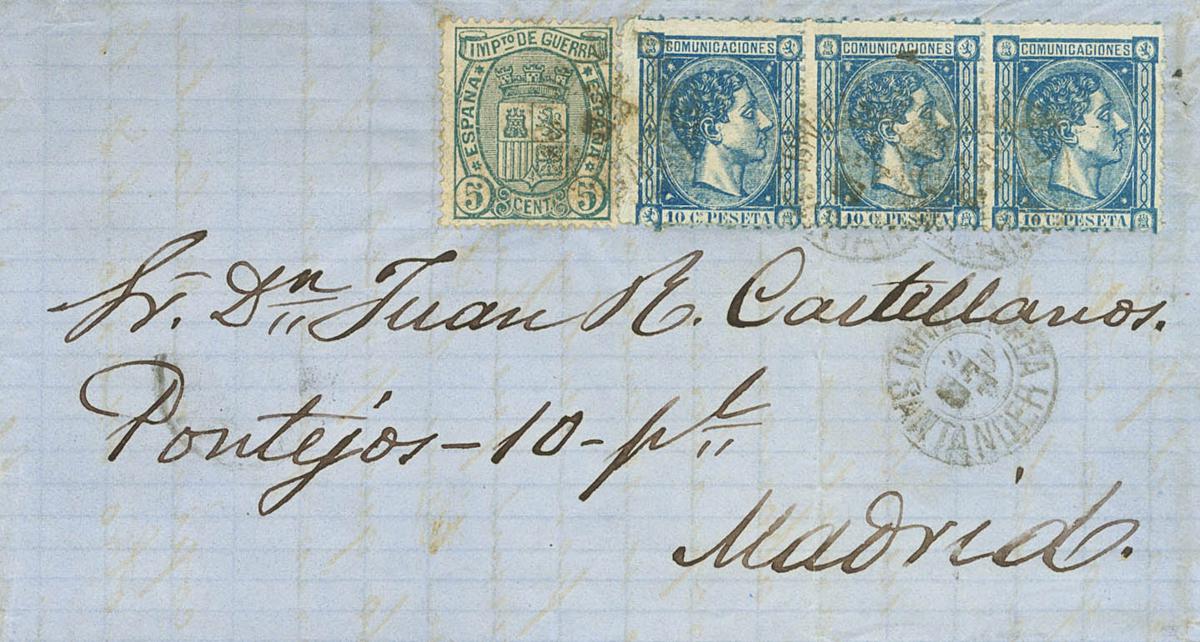 IMPTO DE GUERRA
ESPAÑA
ESPAÑA
5 CENT. 5
COMUNICACIONES
10 C. PESETA
COMUNICACIONES
10 C. PESETA
COMUNICACIONES
10 C. PESETA
Sr. Dn Juan R. Castellanos.
SANTANDER
Pontejos-10-pl
Madrid.